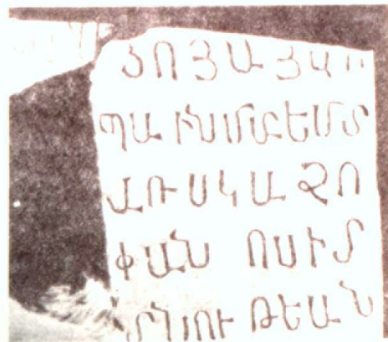 ՅՈՅԱՅԿ
ՊԱԻՍՄԲԵՄՏ
ԱՌՍԿԱՉՈ
ՓԱՆ ՈՍԻՄ
ՏՆՈՒԹԵԱՆ